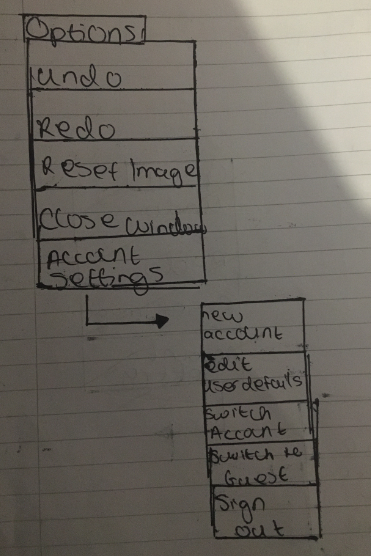 Options
Undo
Redo
Reset Image
Close window
Account
Settings
new
account
edit
userdetails
Switch
Account
Switch to
Guest
Sign
out